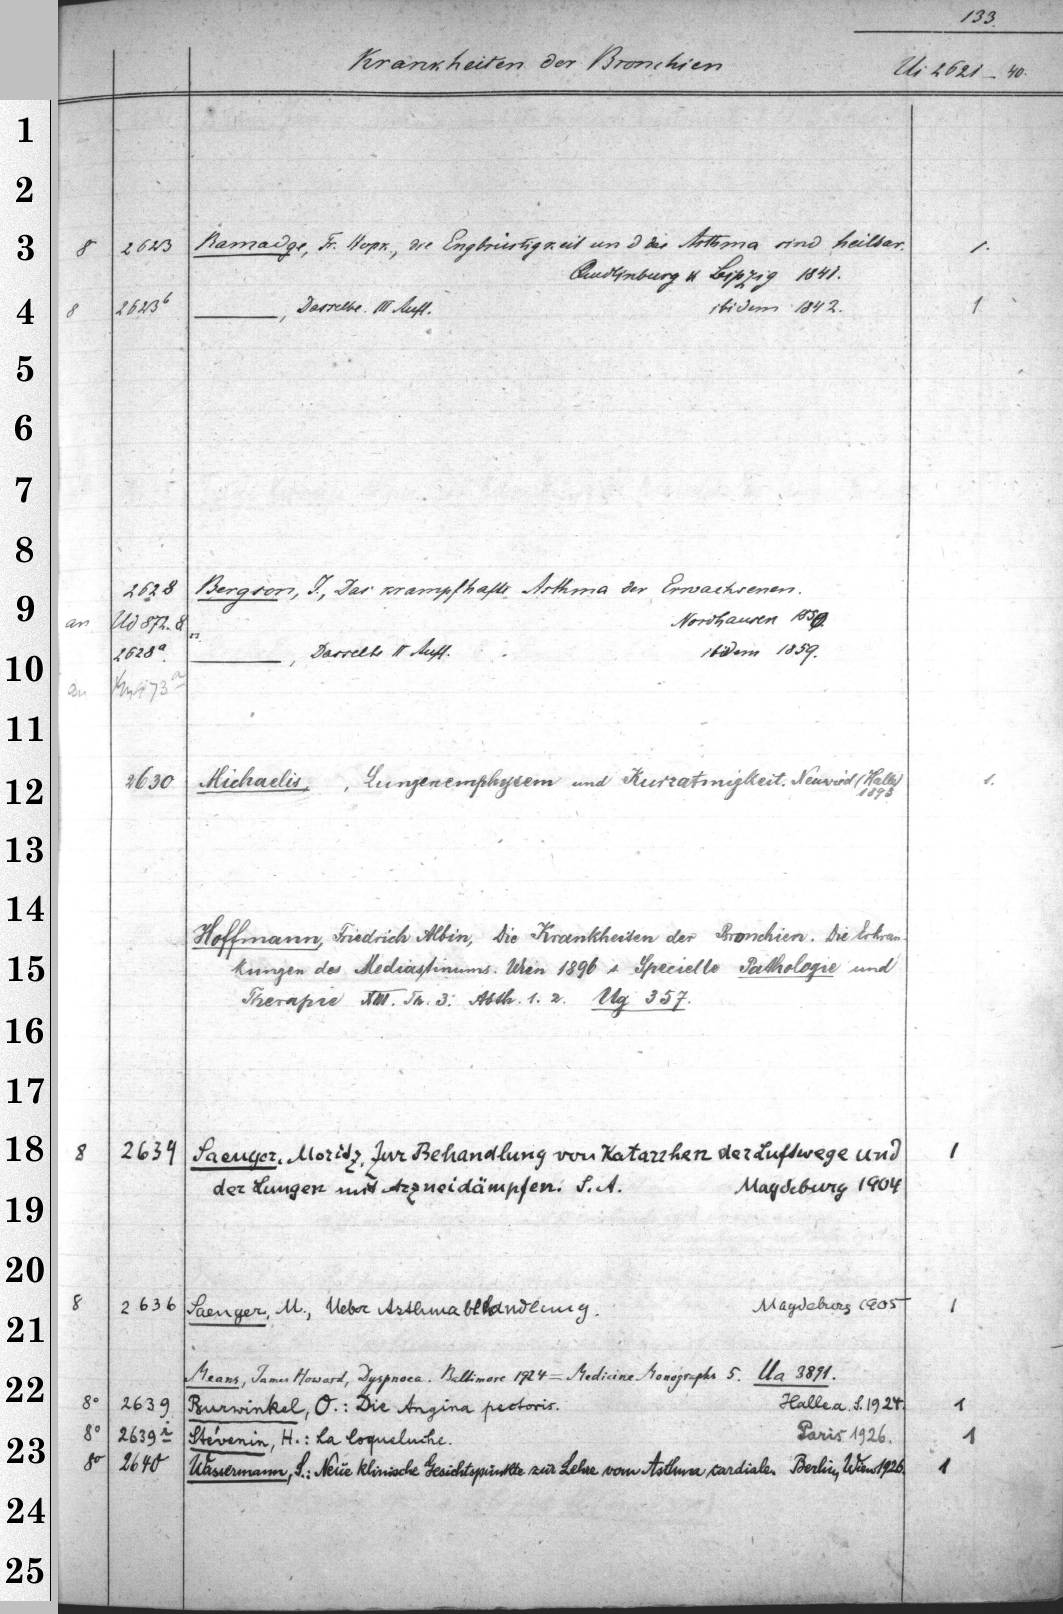 133.
Krankheiten der Bronchien Ui 2621–40.
1
2
3 8 2623 Ramadge, Fr. Hopk., die Engbrüstigkeit und das Asthma sind heilbar. 1.
Quedlinburg u Leipzig 1841.
4 8 2623b ———, Dasselbe. III Aufl. ibidem 1842. 1
5
6
7
8
2628 Bergson, J., Das krampfhafte Asthma der Erwachsenen.
9 an Ud 872. 8 Nordhausen 1850
2628a. ———, Dasselbe II Aufl. ibidem 1859.
10 an
11
12 2630 Michaelis, , Lungenemphysem und Kurzatmigkeit. Neuwied (Halle) 1.
1893
13
14
Hoffmann, Friedrich Albin, Die Krankheiten der Bronchien. Die Erkran-
15 kungen des Mediastinums. Wien 1896 s Specielle Pathologie und
Therapie XIII. Th. 3. Abth. 1. 2. Ug 357.
16
17
18 8 2634 Saenger, Moritz, Zur Behandlung von Katarrhen der Luftwege und 1
der Lungen mit Arzneidämpfen. S.A. Magdeburg 1904
19
20
8 2636 Saenger, M., Ueber Asthmabehandlung. Magdeburg 1905 1
21
Means, James Howard, Dyspnoea. Baltimore 1924 = Medicine Monographs 5. Ua 3891.
22 8° 2639 Burwinkel, O.: Die Angina pectoris. Halle a. S. 1924. 1
8° 2639i Stévenin, H.: La Coqueluche. Paris 1926. 1
23 8° 2640 Wassermann, S.: Neue klinische Gesichtspunkte zur Lehre vom Asthma cardiale. Berlin, Wien 1926. 1
24
25